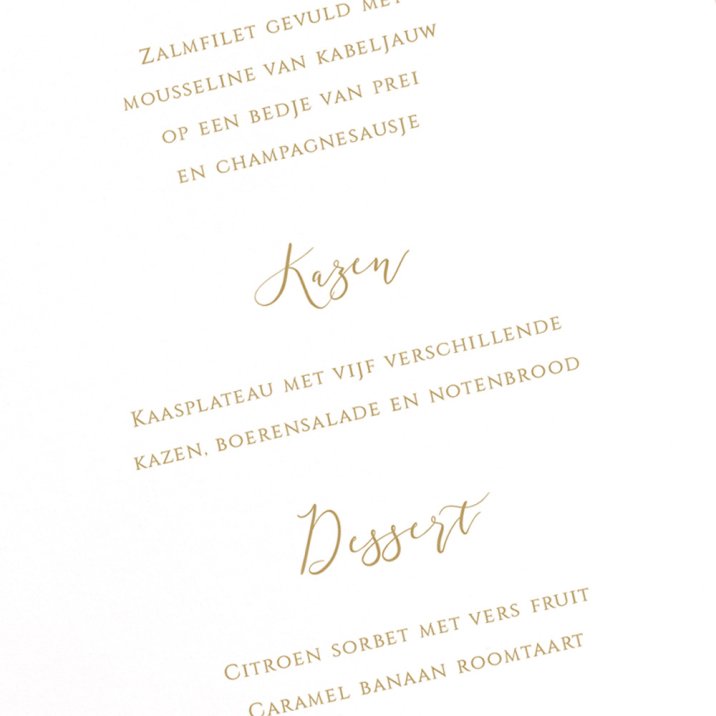 Zalmfilet gevuld met
mousseline van kabeljauw
op een bedje van prei
en champagnesausje
Kazen
Kaasplateau met vijf verschillende
kazen, boerensalade en notenbrood
Dessert
Citroen sorbet met vers fruit
Caramel banaan roomtaart